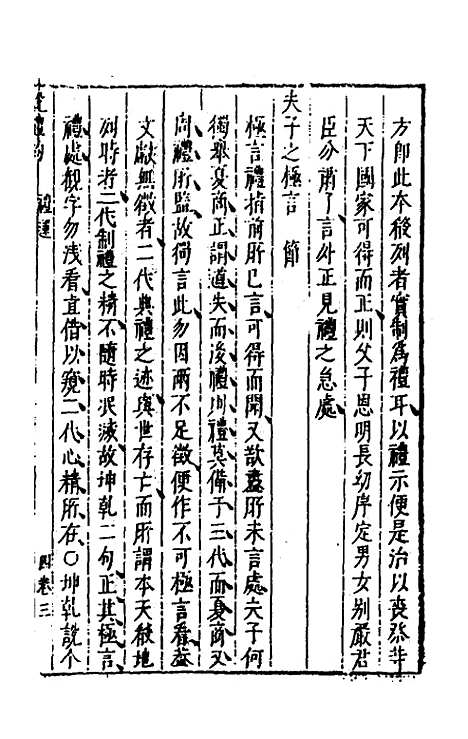 方即此本殽列者實制為禮耳以禮示便是治以喪祭等
天下國家可得而正則父子恩明長幼序定男女別嚴君
臣分肅了言外正見禮之急處
夫子之極言 節
極言禮指前所已言可得而聞又歎盡所未言處六子何
獨舉夏商正謂道失而後禮周禮莫備于三代而夏商又
周禮所監故獨言此勿因兩不足徵便作不可極言看蓋
文獻無徵者二代典禮之迹與世存亡而所謂本天殽地
列時者二代制禮之精不隨時泯滅故坤乾二句正其極言
禮處觀字勿淺看直借以窺二代心精所存○坤乾說个
禮運
四卷三